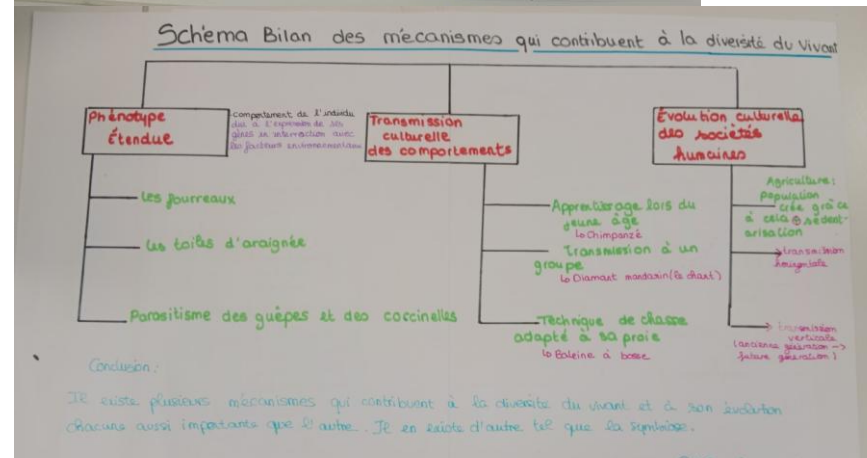 Schéma Bilan des mécanismes qui contribuent à la diversité du Vivant
Phénotype
Étendue
comportement de l'individu
dû à l'expression de ses
gènes en interraction avec
les facteurs environnementaux
Les fourreaux
Les toiles d'araignée
Parasitisme des guêpes et des coccinelles
Transmission
culturelle
des comportements
Apprentissage lors du
jeune âge
↳ Chimpanzé
Transmission à un
groupe
↳ Diamant mandarin (le chant)
Technique de chasse
adapté à sa proie
↳ Baleine à bosse
Évolution culturelle
des sociétés
humaines
Agriculture :
population
crée grâce
à cela ⊕ sédent-
arisation
→ transmission
horizontale
→ transmission
verticale
(ancienne génération →
future génération)
Conclusion :
Il existe plusieurs mécanismes qui contribuent à la diversité du vivant et à son évolution
chacuns aussi importante que l'autre. Il en existe d'autre tel que la symbiose.